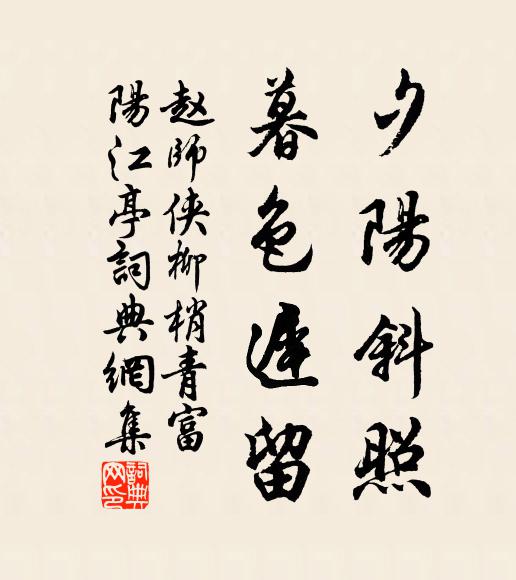 夕陽斜照
暮色遲留
赵師侠柳梢青富
陽江亭詞典網集
詞典
网印